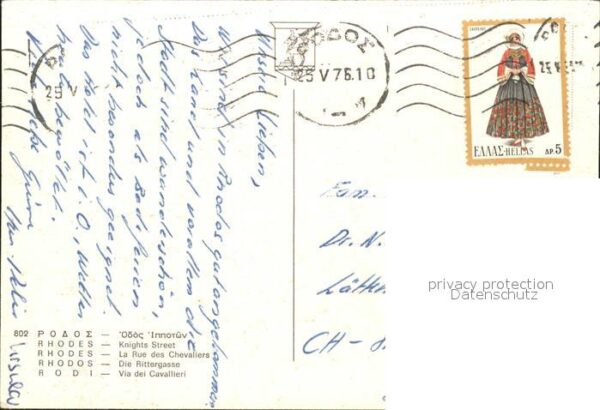 ΡΟΔΟΣ
25 V 76.10
25 V
ΕΛΛΑΣ-HELLAS ΔΡ. 5
Unsere Lieben,
Wir sind in Rhodos gut angekommen.
Das Land und vor allem die
Stadt sind wunderschön,
jedoch als Badeferien
nicht besonders geeignet.
Das Hotel ist i. O., Wetter
heute bewölkt.
Liebe Grüsse
Ursula
Fam.
Dr. N.
CH-
privacy protection
Datenschutz
802 ΡΟΔΟΣ — Ὁδὸς Ἱπποτῶν
RHODES — Knights Street
RHODES — La Rue des Chevaliers
RHODOS — Die Rittergasse
RODI — Via dei Cavallieri